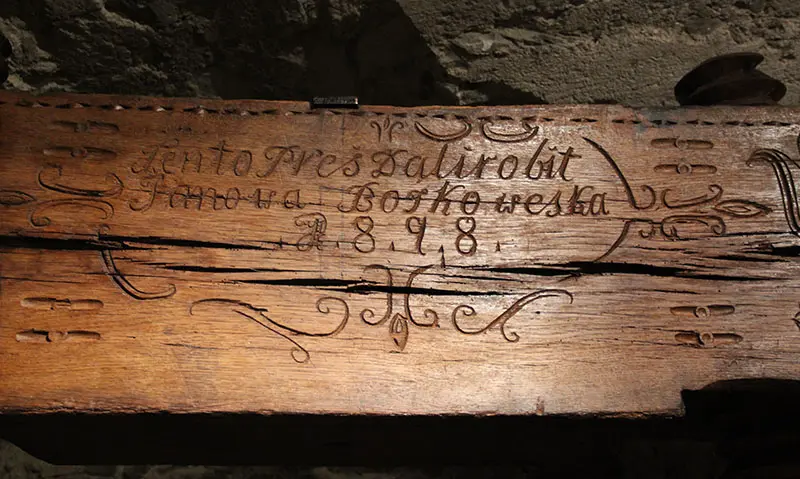 Tento Preś Dali robit
Panowa Borkoweska
R. 8. 9. 8.